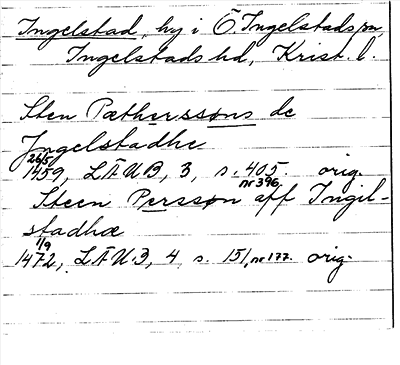 Ingelstad, by i Ö. Ingelstads sn,
Ingelstads hd, Krist. l.
Sten Pætherssøns de
Jngelstadhe
26/5
1459, LÄUB, 3, s. 405. orig.
nr 396.
Steen Perssøn aff Ingil-
stadhæ
1/9
1472, LÄUB, 4 s. 151, nr 177. orig.